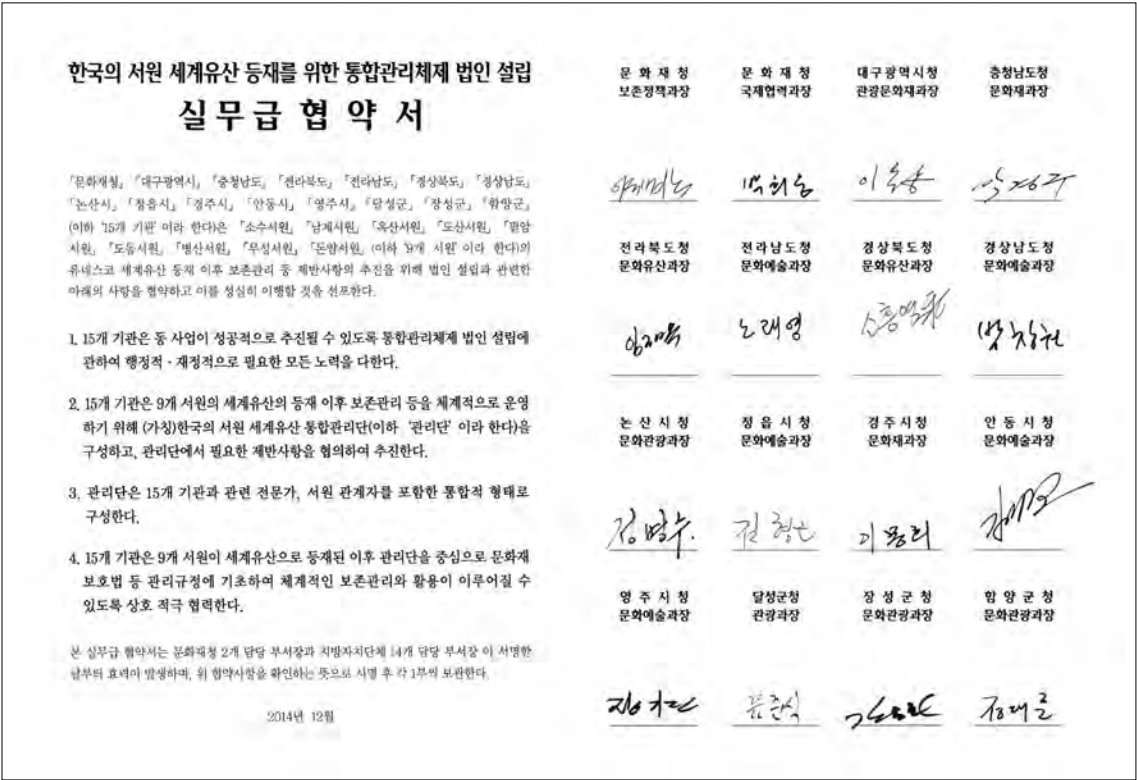 한국의 서원 세계유산 등재를 위한 통합관리체제 법인 설립
실무급 협약서
「문화재청」 「대구광역시」 「충청남도」 「전라북도」 「전라남도」 「경상북도」 「경상남도」
「논산시」 「정읍시」 「경주시」 「안동시」 「영주시」 「달성군」 「장성군」 「함양군」
(이하 '15개 기관' 이라 한다)은 「소수서원」 「남계서원」 「옥산서원」 「도산서원」 「필암
서원」 「도동서원」 「병산서원」 「무성서원」 「돈암서원」 (이하 '9개 서원' 이라 한다)의
유네스코 세계유산 등재 이후 보존관리 등 제반사항의 추진을 위해 법인 설립과 관련한
아래의 사항을 협약하고 이를 성실히 이행할 것을 선포한다.
1. 15개 기관은 동 사업이 성공적으로 추진될 수 있도록 통합관리체제 법인 설립에
관하여 행정적·재정적으로 필요한 모든 노력을 다한다.
2. 15개 기관은 9개 서원의 세계유산의 등재 이후 보존관리 등을 체계적으로 운영
하기 위해 (가칭)한국의 서원 세계유산 통합관리단(이하 '관리단' 이라 한다)을
구성하고, 관리단에서 필요한 제반사항을 협의하여 추진한다.
3. 관리단은 15개 기관과 관련 전문가, 서원 관계자를 포함한 통합적 형태로
구성한다.
4. 15개 기관은 9개 서원이 세계유산으로 등재된 이후 관리단을 중심으로 문화재
보호법 등 관리규정에 기초하여 체계적인 보존관리와 활용이 이루어질 수
있도록 상호 적극 협력한다.
본 실무급 협약서는 문화재청 2개 담당 부서장과 지방자치단체 14개 담당 부서장 이 서명한
날부터 효력이 발생하며, 위 협약사항을 확인하는 뜻으로 서명 후 각 1부씩 보관한다.
2014년 12월
문화재청 문화재청 대구광역시청 충청남도청
보존정책과장 국제협력과장 관광문화재과장 문화재과장
전라북도청 전라남도청 경상북도청 경상남도청
문화유산과장 문화예술과장 문화유산과장 문화예술과장
노래영
논산시청 정읍시청 경주시청 안동시청
문화관광과장 문화예술과장 문화재과장 문화예술과장
영주시청 달성군청 장성군청 함양군청
문화예술과장 관광과장 문화관광과장 문화관광과장